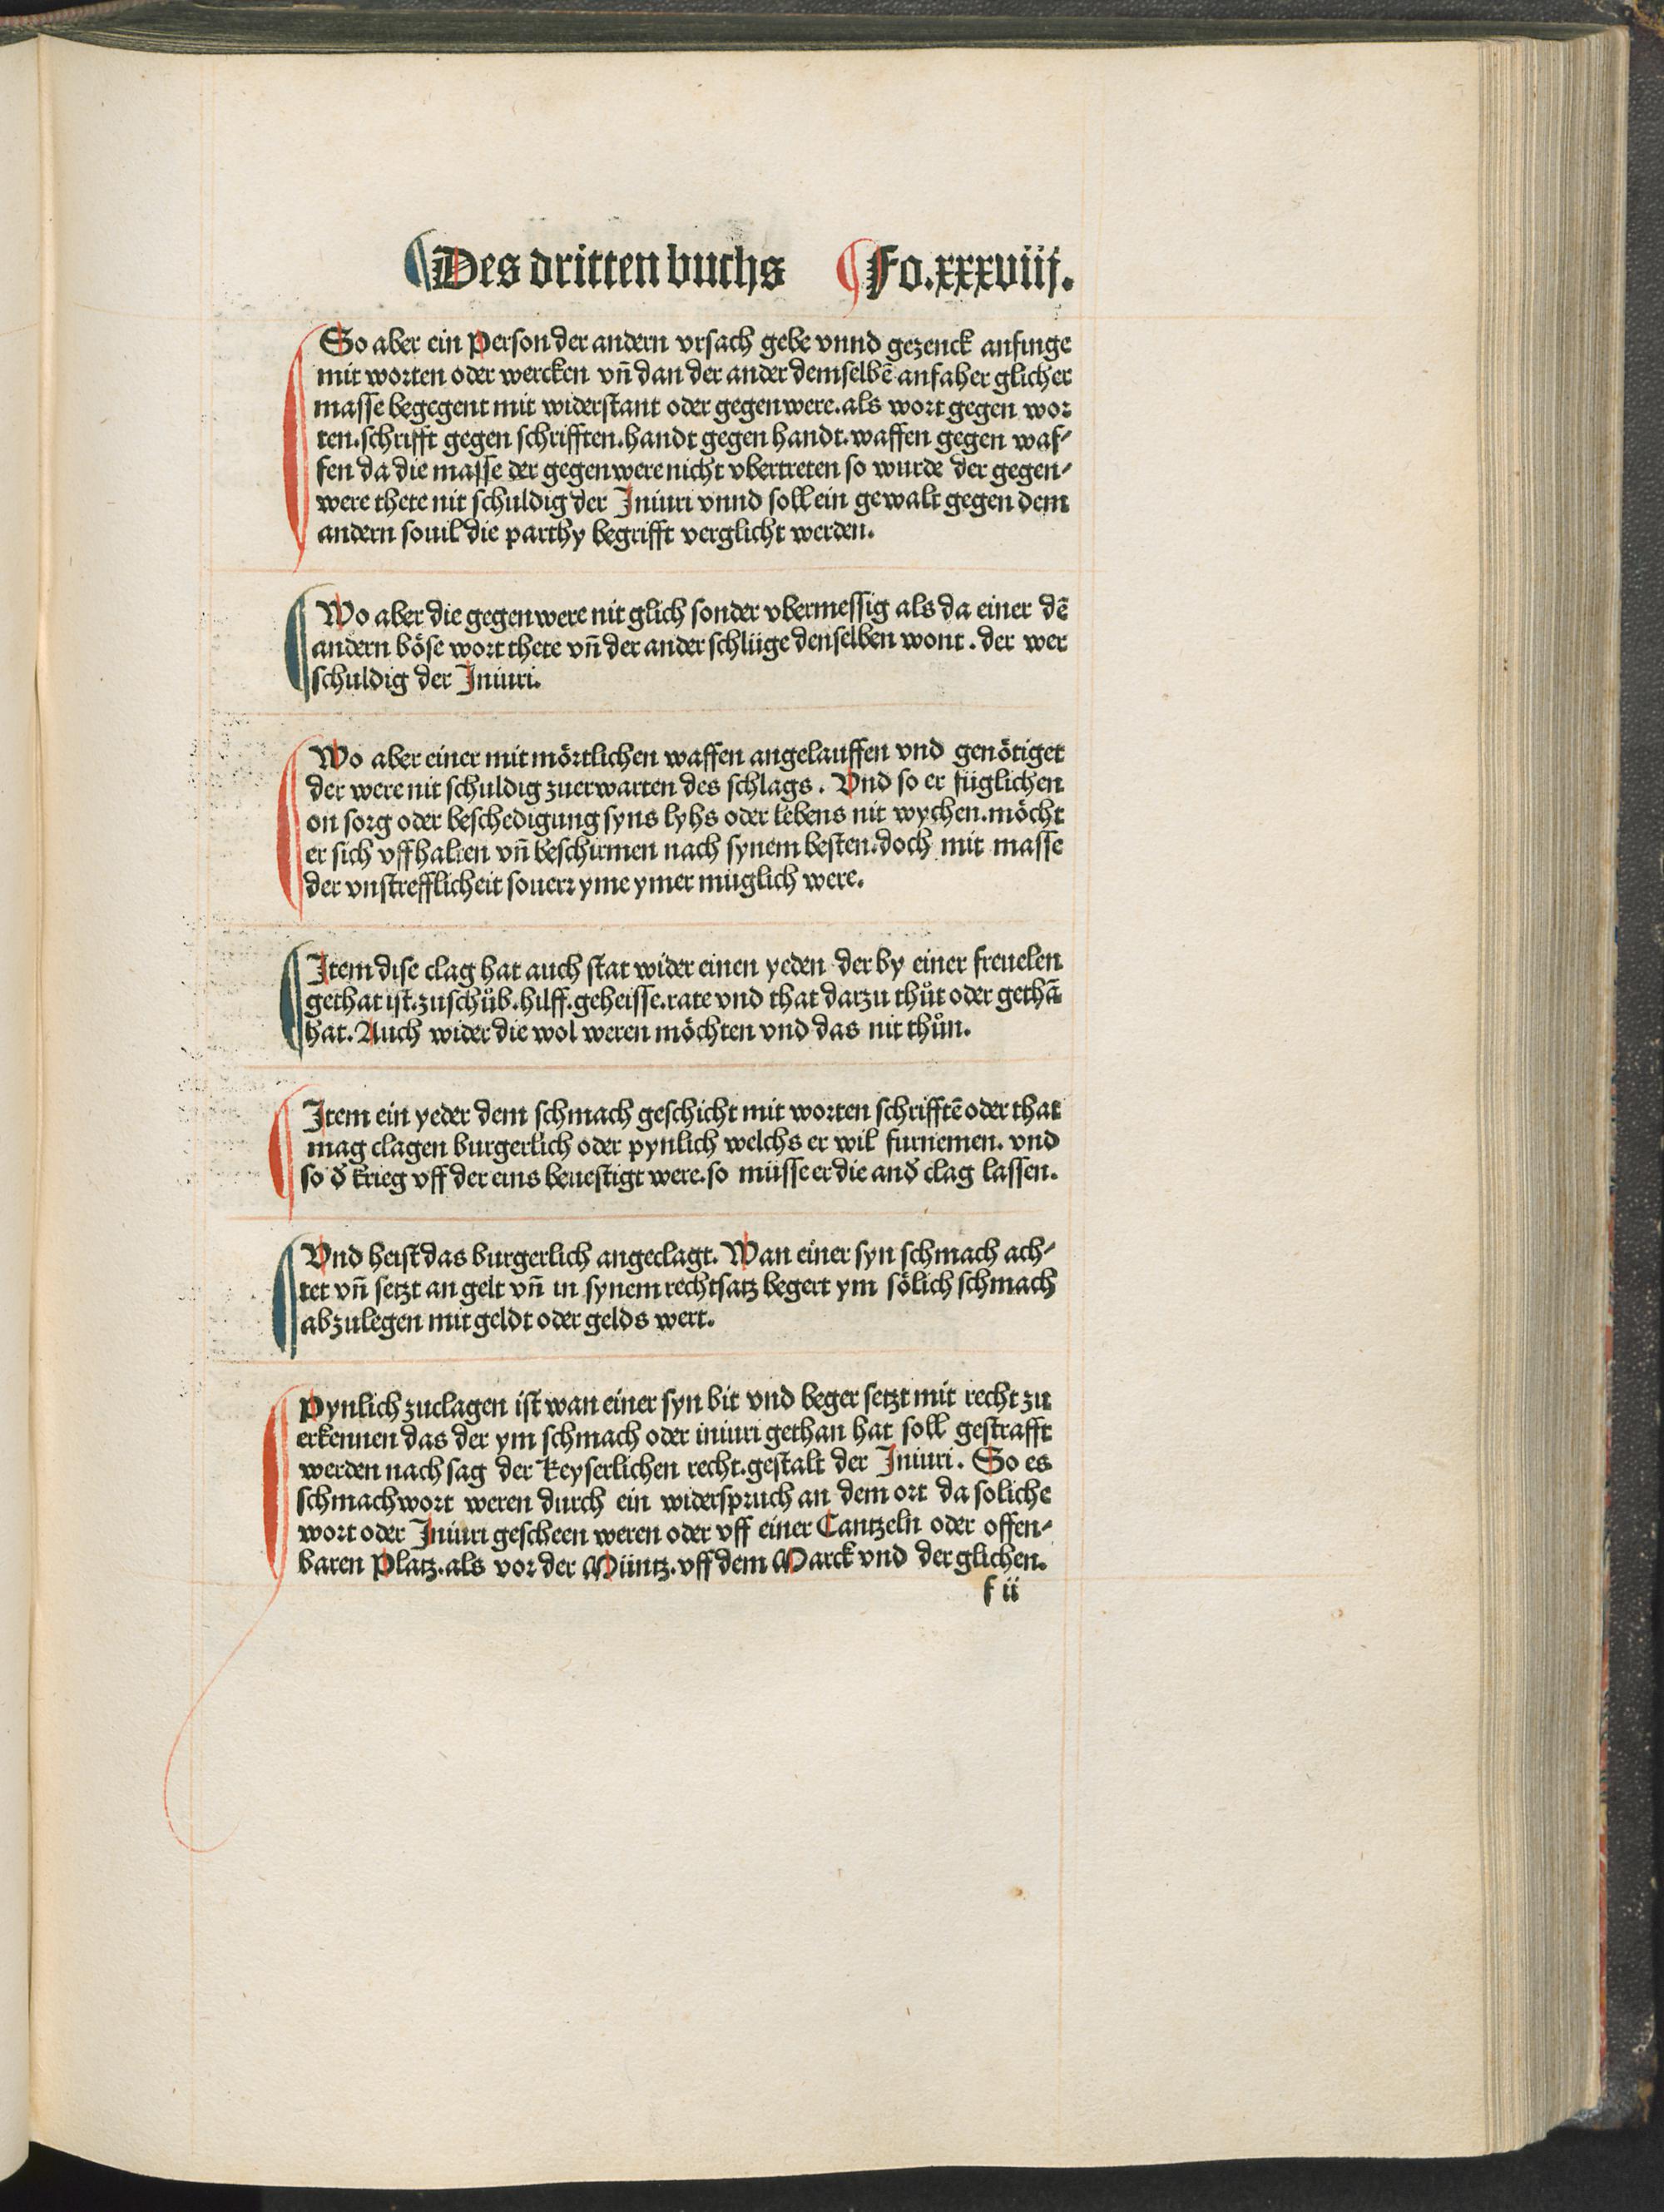 Des dritten buchs Fo.xxxviij.
So aber ein Person der andern vrsach gebe vnnd gezenck anfinge
mit worten oder wercken vñ dan der ander demselbē anfaher glicher
masse begegent mit widerstant oder gegenwere. als wort gegen wor
ten. schrifft gegen schrifften. handt gegen handt. waffen gegen waf⸗
fen da die masse der gegenwere nicht vbertreten so wurde der gegen⸗
were thete nit schuldig der Iniuri vnnd soll ein gewalt gegen dem
andern souil die parthy begrifft verglicht werden.
Wo aber die gegenwere nit glich sonder vbermessig als da einer dē
andern böse wort thete vñ der ander schlüge denselben wont. der wer
schuldig der Iniuri.
Wo aber einer mit mörtlichen waffen angelauffen vnd genötiget
der were nit schuldig zuerwarten des schlags. Vnd so er füglichen
on sorg oder beschedigung syns lybs oder lebens nit wychen. möcht
er sich vffhalten vñ beschirmen nach synem besten. doch mit masse
der vnstrefflicheit souerr yme ymer müglich were.
Item dise clag hat auch stat wider einen yeden der by einer freuelen
gethat ist. zuschůb. hilff. geheisse. rate vnd that darzu thůt oder gethā
hat. Auch wider die wol weren möchten vnd das nit thůn.
Item ein yeder dem schmach geschicht mit worten schrifftē oder that
mag clagen burgerlich oder pynlich welchs er wil furnemen. vnd
so đ krieg vff der eins beuestigt were. so müsse er die anđ clag lassen.
Vnd heist das burgerlich angeclagt. Wan einer syn schmach ach⸗
tet vñ setzt an gelt vñ in synem rechtsatz begert ym sölich schmach
abzulegen mit geldt oder gelds wert.
Pynlich zuclagen ist wan einer syn bit vnd beger setzt mit recht zu
erkennen das der ym schmach oder iniuri gethan hat soll gestrafft
werden nach sag der keyserlichen recht. gestalt der Iniuri. So es
schmachwort weren durch ein widerspruch an dem ort da soliche
wort oder Iniuri gescheen weren oder vff einer Cantzeln oder offen⸗
baren Platz. als vor der Müntz. vff dem Marck vnd der glichen.
f ii